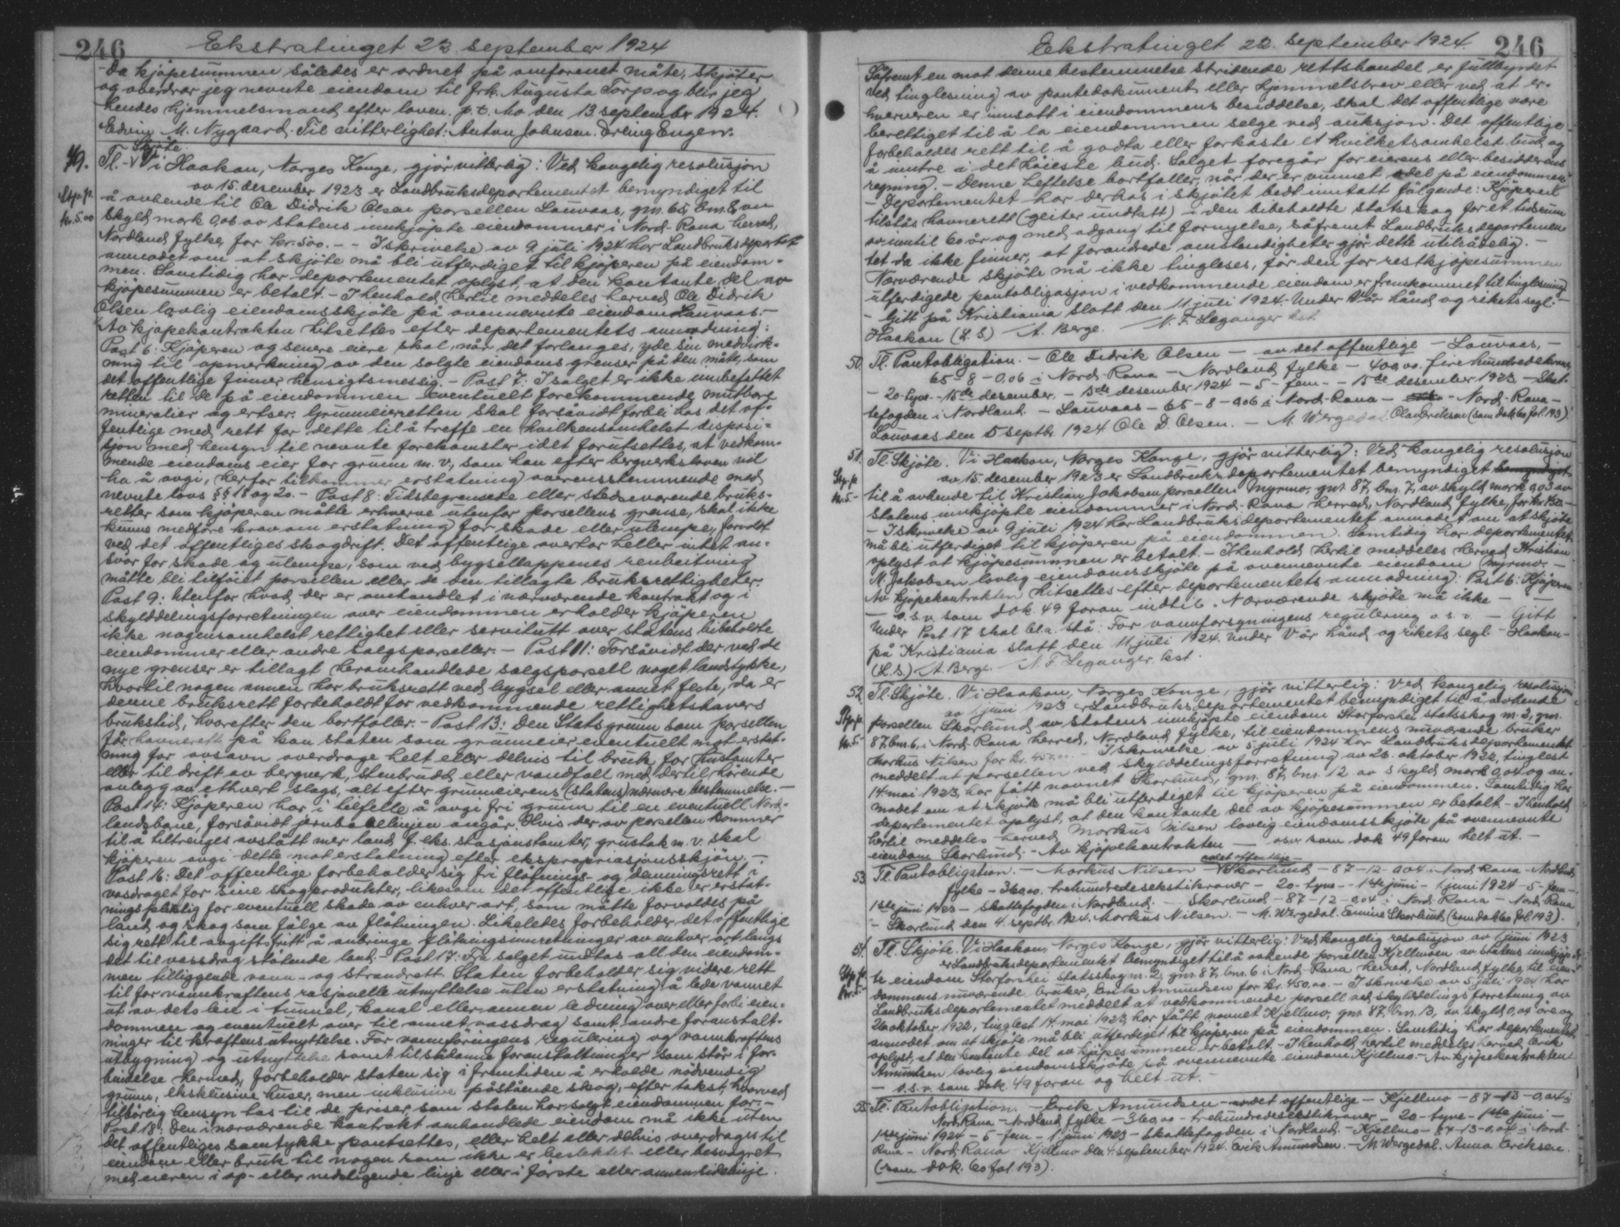 246
Ekstratinget 23 september 1924
Da kjøpesummen således er ordnet på omforenet måte, skjøter
og overdrar jeg nevnte eiendom til frk. Augusta Torp og blir jeg
hendes hjemmelsmand efter loven. p.t. Mo den 13 september 1924.
Edvin M. Nygaard. Til vitterlighet: Anton Johnsen. Dreng Engen.
Skjøte
49. Tl. - Vi Haakon, Norges Konge, gjør vitterlig: Ved kongelig resolusjon
av 15 desember 1923 er Landbruksdepartementet bemyndiget til
å avhende til Ole Didrik Olsen porsellen Lauvaas, gnr. 65, bnr. 8 av
skyld mark 0,06 av statens innkjøpte eiendommer i Nord-Rana herred,
Nordland fylke, for kr. 500. - - I skrivelse av 9 juli 1924 har Landbruksdepartet
anmodet om at skjøte må bli utferdiget til kjøperen på eiendom-
men. Samtidig har departementet oplyst, at den kontante del av
kjøpesummen er betalt. - I henhold hertil meddeles herved Ole Didrik
Olsen lovlig eiendomsskjøte på ovennevnte eiendom Lauvaas. -
Av kjøpekontrakten hitsettes efter departementets anmodning:
Post 6: Kjøperen og senere eiere skal, når det forlanges, yde sin medvirk-
ning til opmerkning av den solgte eiendoms grenser på den måte, som
det offentlige finner hensigtsmessig. - Post 7: I salget er ikke innbefattet
retten til de på eiendommen eventuelt forekommende mutbare
mineralier og ertser. Grunneierretten skal forsåvidt forbli hos det of-
fentlige med rett for dette til å treffe en hvilkensomhelst disposi-
sjon med hensyn til nevnte forekomster idet forutsettes, at vedkom-
mende eiendoms eier for grunn m. v., som han efter bergverksloven må
ha å avgi, herfor tilkommer erstatning overensstemmende med
nevnte lovs §§ 18 og 20. - Post 8: Tidsbegrensede eller stedsevarende bruks-
retter som kjøperen måtte erhverve utenfor porsellens grense, skal ikke
kunne medføre krav om erstatning for skade eller ulempe, forvoldt
ved det offentliges skogdrift. Det offentlige overtar heller intet an-
svar for skade og ulempe, som ved bygsellappenes renbeitning
måtte bli tilføiet porsellen eller de den tillagte bruksrettigheter.
Post 9: Utenfor hvad der er omhandlet i nærværende kontrakt og i
skylddelingsforretningen over eiendommen erholder kjøperen
ikke nogensomhelst rettighet eller servitutt over statens bibeholdte
eiendommer eller andre salgsparseller. - Post 11: Forsåvidt der ved de
nye grenser er tillagt heromhandlede salgsporsell noget landstykke,
hvortil nogen annen har bruksrett ved bygsel eller annet feste, da er
denne bruksrett forbeholdt for vedkommende rettighetshavers
brukstid, hvorefter den bortfaller. - Post 13: Den Statsgrunn som porsellen
får havnerett på kan staten som grunneier eventuelt mot erstat-
ning for avsavn overdrage helt eller delvis til bruk for hustomter
eller til drift av bergverk, stenbrudd eller vandfall med dertil hørende
anlegg av ethvert slags, alt efter grunneierens (Statens) nærmere bestemmelse. -
Post 14: Kjøperen har i tilfelle å avgi fri grunn til en eventuell Nord-
landsbane, forsåvidt jernbanelinjen angår. Hvis der av porsellen kommer
til å tiltrenges avstått mer land f. eks. stasjonstomter, grustak m. v. skal
kjøperen avgi dette mot erstatning efter ekspropriasjonsskjøn. -
Post 16: Det offentlige forbeholder sig fri fløtnings- og demningsrett i
vasdraget for sine skogprodukter, likesom det offentlige ikke er erstat-
ningspliktig for eventuell skade av enhver art, som måtte forvoldes på
land og skog som følge av fløtningen. Likeledes forbeholder det offentlige
sig rett til avgiftsfritt å anbringe fløtningsinnretninger av enhver art langs
det til vassdrag støtende land. Post 17: Fra salget undtas all den eiendom-
men tilliggende vann- og strandrett. Staten forbeholder sig videre rett
til for vannkraftens rasjonelle utnyttelse uten erstatning å lede vannet
ut av dets leie i tunnel, kanal eller annen ledning over eller forbi eien-
dommen og eventuelt over til annet vassdrag samt andre foranstalt-
ninger til kraftens utnyttelse. For vannføringens regulering og vannkraftens
utbygning og utnyttelse samt tilstøtende foranstaltninger som står i for-
bindelse hermed, forbeholder staten sig i fremtiden å erholde nødvendig
grunn, eksklusive huser, men inklusive påstående skog, efter takst, hvorved
tilbørlig hensyn tas til de priser som staten har solgt eiendommen for. -
Post 18: Den i nærværende kontrakt omhandlede eiendom må ikke uten
det offentliges samtykke pantsettes, eller helt eller delvis overdrages til
eiendom eller bruk til nogen som ikke er beslektet eller besvogret
med eieren i op- eller nedstigende linje eller i første eller annen sidelinje.
Stp. p.
kr. 5.00
Ekstratinget 23. september 1924.
246
Såfremt en mot denne bestemmelse stridende rettshandel er fullbyrdet
ved tinglesning av pantedokument eller hjemmelsbrev eller ved at er-
hververen er innsatt i eiendommens besiddelse, skal det offentlige være
berettiget til å la eiendommen selge ved auksjon. Det offentlige
forbeholdes rett til å godta eller forkaste et hvilketsomhelst bud, og
å inntre i det høieste bud. Salget foregår for eierens eller besidderens
regning. - Denne heftelse bortfaller, når der er vunnet odel på eiendommen
- Departementet har derhos i skjøtet bedt inntatt følgende: Kjøperen
tilstås havnerett (geiter undtatt) i den bibeholdte statsskog for et tidsrum
av inntil 60 år og med adgang til fornyelse, såfremt Landbruksdepartemen
tet da ikke finner, at forandrede omstendigheter gjør dette utilrådelig. -
Nærværende skjøte må ikke tingleses, før den for restkjøpesummen
utferdigede pantobligasjon i vedkommende eiendom er fremkommet til tinglesning
- Gitt på Kristiania slott den 11 juli 1924. Under Vår hånd og rikets segl -
Haakon (L. S) A. Berge. N. F. Leganger
50. Tl. Pantobligation. - Ole Didrik Olsen - av det offentlige - Lauvaas, -
65 - 8 - 0,06 i Nord-Rana - Nordland fylke - 400,00. firehundredekroner
- 20 tyve - 15de desember - 15de desember 1924 - 5 - fem - 15de desember 1923 - Skat-
tefogden i Nordland - Lauvaas - 65 - 8 - 0,06 i Nord-Rana - Nord-Rana -
Lauvaas den 5 septbr. 1924 Ole D. Olsen. - M. Wergedal Ola Eriksen (sam dok 60 fol 193)
51. Tl. Skjøte. Vi Haakon, Norges Konge, gjør vitterlig: Ved kongelig resolusjon
av 15 desember 1923 er Landbruksdepartementet bemyndiget
til å avhende til Kristian Jakobsen porsellen Myrmo, gnr. 87, bnr. 7, av skyld mark 0,03 av
statens innkjøpte eiendommer i Nord-Rana herred, Nordland fylke, for kr. 150 -
- I skrivelse av 9 juli 1924 har Landbruksdepartementet anmodet om at skjøte
må bli utferdiget til kjøperen på eiendommen. Samtidig har departementet
oplyst at kjøpesummen er betalt. - I henhold hertil meddeles herved Kristian
M. Jakobsen lovlig eiendomsskjøte på ovennevnte eiendom Myrmo. -
Av kjøpekontrakten hitsettes efter departementets anmodning: Post 6: Kjøperen
- o.s.v. som dok 49 foran indtil. Nærværende skjøte må ikke -
Under Post 17 skal bl.a. stå: For vannforsyningens regulering o. s. v. - Gitt
på Kristiania slott den 11 juli 1924. Under Vår hånd og rikets segl - Haakon -
(L.S.) A. Berge. N. F. Leganger
52. Tl. Skjøte. Vi Haakon, Norges Konge, gjør vitterlig: Ved kongelig resolusjon
av 1 juni 1923 er Landbruksdepartementet bemyndiget til å avhende
porsellen Skorlund av statens innkjøpte eiendom Storforshei statsskog m. 2, gnr.
87, bnr. 6, i Nord-Rana herred, Nordland fylke, til eiendommens nuværende bruker
Markus Nilsen for kr. 450.00. - I skrivelse av 5 juli 1924 har Landbruksdepartementet
meddelt at porsellen ved skylddelingsforretning av 26. oktober 1922, tinglest
14 mai 1923, har fått navnet Skorlund, gnr. 87, bnr. 12 av skyld mark 0,04 og an-
modet om at skjøte må bli utferdiget til kjøperen på eiendommen. Samtidig har
departementet oplyst, at den kontante del av kjøpesummen er betalt - I henhold
hertil meddeles herved Markus Nilsen lovlig eiendomsskjøte på ovennevnte
eiendom Skorlund. - Av kjøpekontrakten - o.s.v. som dok 49 foran helt ut. -
av det offentlige
53. Tl. Pantobligation. - Markus Nilsen - Skorlund - 87 - 12 - 0,04 - i Nord-Rana - Nordland
fylke - 360,00. trehundredesekstikroner - 20 - tyve - 1ste juni - 1 juni 1924 - 5 - fem -
1ste juni 1923 - Skattefogden i Nordland - Skorlund - 87 - 12 - 0,04 i Nord-Rana - Nord-Rana
- Skorlund den 4. septbr. 1924. Markus Nilsen. - M. Wergedal. Skorlund (sam dok 60 fol 193).
54. Tl. Skjøte. Vi Haakon, Norges Konge, gjør vitterlig: Ved kongelig resolusjon av 1 juni 1923
er Landbruksdepartementet bemyndiget til å avhende porsellen Kjellmoen av statens innkjøp-
te eiendom Storforshei statsskog m. 2, gnr. 87, bnr. 6 i Nord-Rana herred, Nordland fylke, til eien-
dommens nuværende bruker, Erik Amundsen for kr. 450,00. - I skrivelse av 5 juli 1924 har
Landbruksdepartementet meddelt at vedkommende porsell ved skylddelingsforretning av
26 oktober 1922, tinglest 14 mai 1923, har fått navnet Kjellmo, gnr. 87, bnr. 13, av skyld 0,04 øre og
anmodet om at skjøte må bli utferdiget til kjøperen på eiendommen. Samtidig har departementet
oplyst, at den kontante del av kjøpesummen er betalt. - I henhold hertil meddeles herved Erik
Amundsen lovlig eiendomsskjøte på ovennevnte eiendom Kjellmo. - Av kjøpekontrakten
- o.s.v. som dok 49 foran og helt ut. -
55. Tl. Pantobligation - Erik Amundsen - av det offentlige - Kjellmo - 87 - 13 - 0,04 i
Nord-Rana - Nordland fylke - 360,00 - trehundredesekstikroner - 20 - tyve - 1ste juni -
1ste juni 1924 - 5 - fem - 1 juni 1923 - Skattefogden i Nordland - Kjellmo - 87-13-0,04 - i Nord-
Rana - Nord-Rana - Kjellmo den 4 september 1924. Erik Amundsen. - M. Wergedal. Anna Eriksen.
(sam dok. 60 fol. 193).